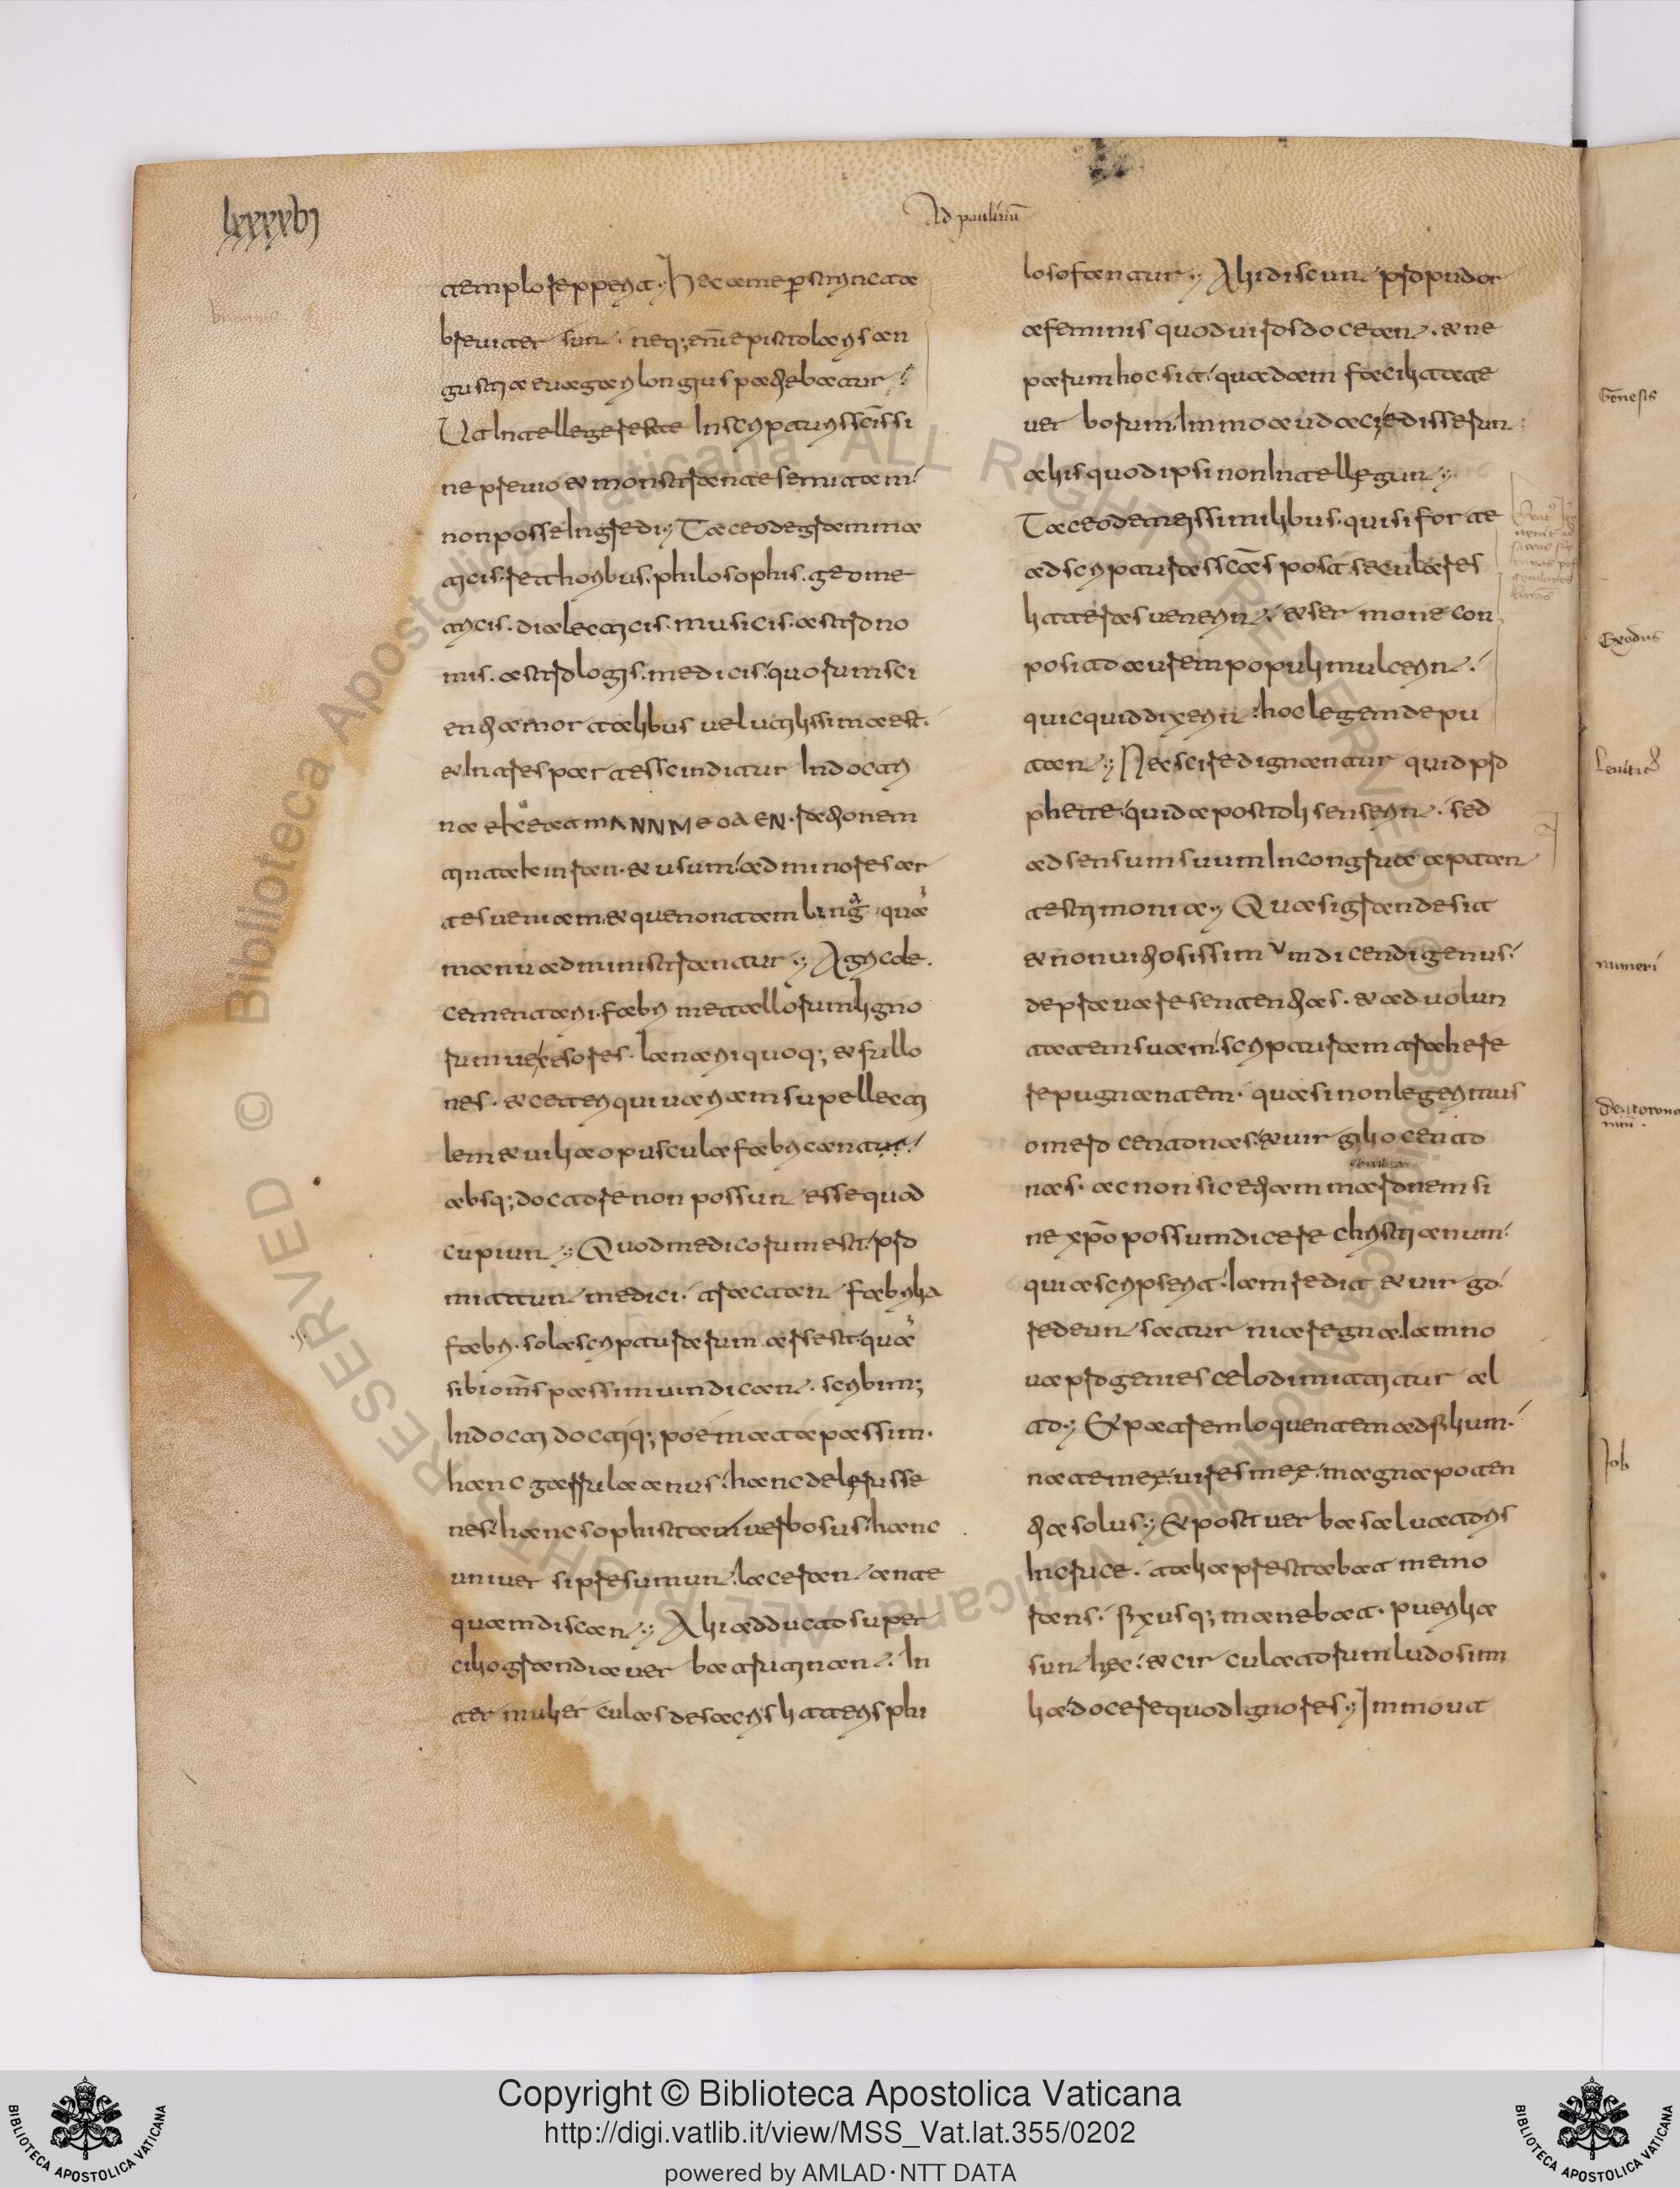 lxxxxvi
Ad paulinū
templo reppererit. Hec a me p̄strincta
breviter sunt. neq; enī epistolaris an
gustia evagari longius patiebatur.
Ut intellegeres te in scripturis sc̄is si
ne previo et monstrante semitam
non posse ingredi. Taceo de gramma
ticis. rethoribus. philosophis. geome
tricis. dialecticis. musicis. astrono
mis. astrologis. medicis. quorum sci
entia mortalibus vel utilissima est.
et in tres partes scinditur In doctri
rationem
et usum. ad minores ar
tes veniam. et que non tam lingᵃ quā
manu administrantur. Agricole.
cementarii. fabri metallorum ligno
rumve cesores. lanarii quoq; et fullo
nes. et ceteri qui variam supellecti
lem et vilia opuscula fabricantur.
absq; doctore non possunt esse quod
cupiunt. Quod medicorum est pro
mittunt medici. tractant fabrilia
fabri. sola scripturarum ars est quā
sibi om̄s passim vindicant. scribim;
Indocti doctiq; poemata passim.
hanc garrula anus. hanc delerus se
nex. hanc sophista verbosus. hanc
universi presumunt. lacerant ante
quam discant. Alii adducto super
cilio grandia verba trutinant. In
ter mulierculas de sacris litteris phi
losofantur. Alii discunt pro pudor
a feminis quod viros doceant. et ne
parum hoc sit. quadam facilitate
verborum. Immo audacie disserunt
aliis quod ipsi non intellegunt.
Taceo de meis similibus. qui si forte
ad scripturas sc̄as post seculares
litteras venerint. et sermone con
posito aurem populi mulcerint.
quicquid dixerint. hoc legem dei pu
tant. Ne scire dignantur quid pro
phete. quid apostoli senserint. sed
ad sensum suum Incongrua aptant
testimonia. Quasi grande sit
et non vitiosissimum dicendi genus.
depravare sententias. et ad volun
tatem suam scripturam trahere
repugnantem. quasi non legerimus
omerocentonas. et virgiliocento
nas. ac non sic etiam maronem si
ne xp̄o possum dicere christianum.
quia scripserit. Iam redit et virgo.
redeunt saturnia regna. Iam no
va progenies celo dimittitur al
to. Et patrem loquentem ad filium.
nate mee vires mea magna poten
tia solus. Et post verba salvatoris
In cruce. talia prestabat memo
rans. fixusq; manebat. puerilia
sunt hec. et circulatorum ludo simi
lia. docere quod Ignores. Immo ut
Genesis
Exodus
numeri
Job
Copyright © Biblioteca Apostolica Vaticana
http://digi.vatlib.it/view/MSS_Vat.lat.355/0202
powered by AMLAD·NTT DATA
BIBLIOTECA APOSTOLICA VATICANA
BIBLIOTECA APOSTOLICA VATICANA